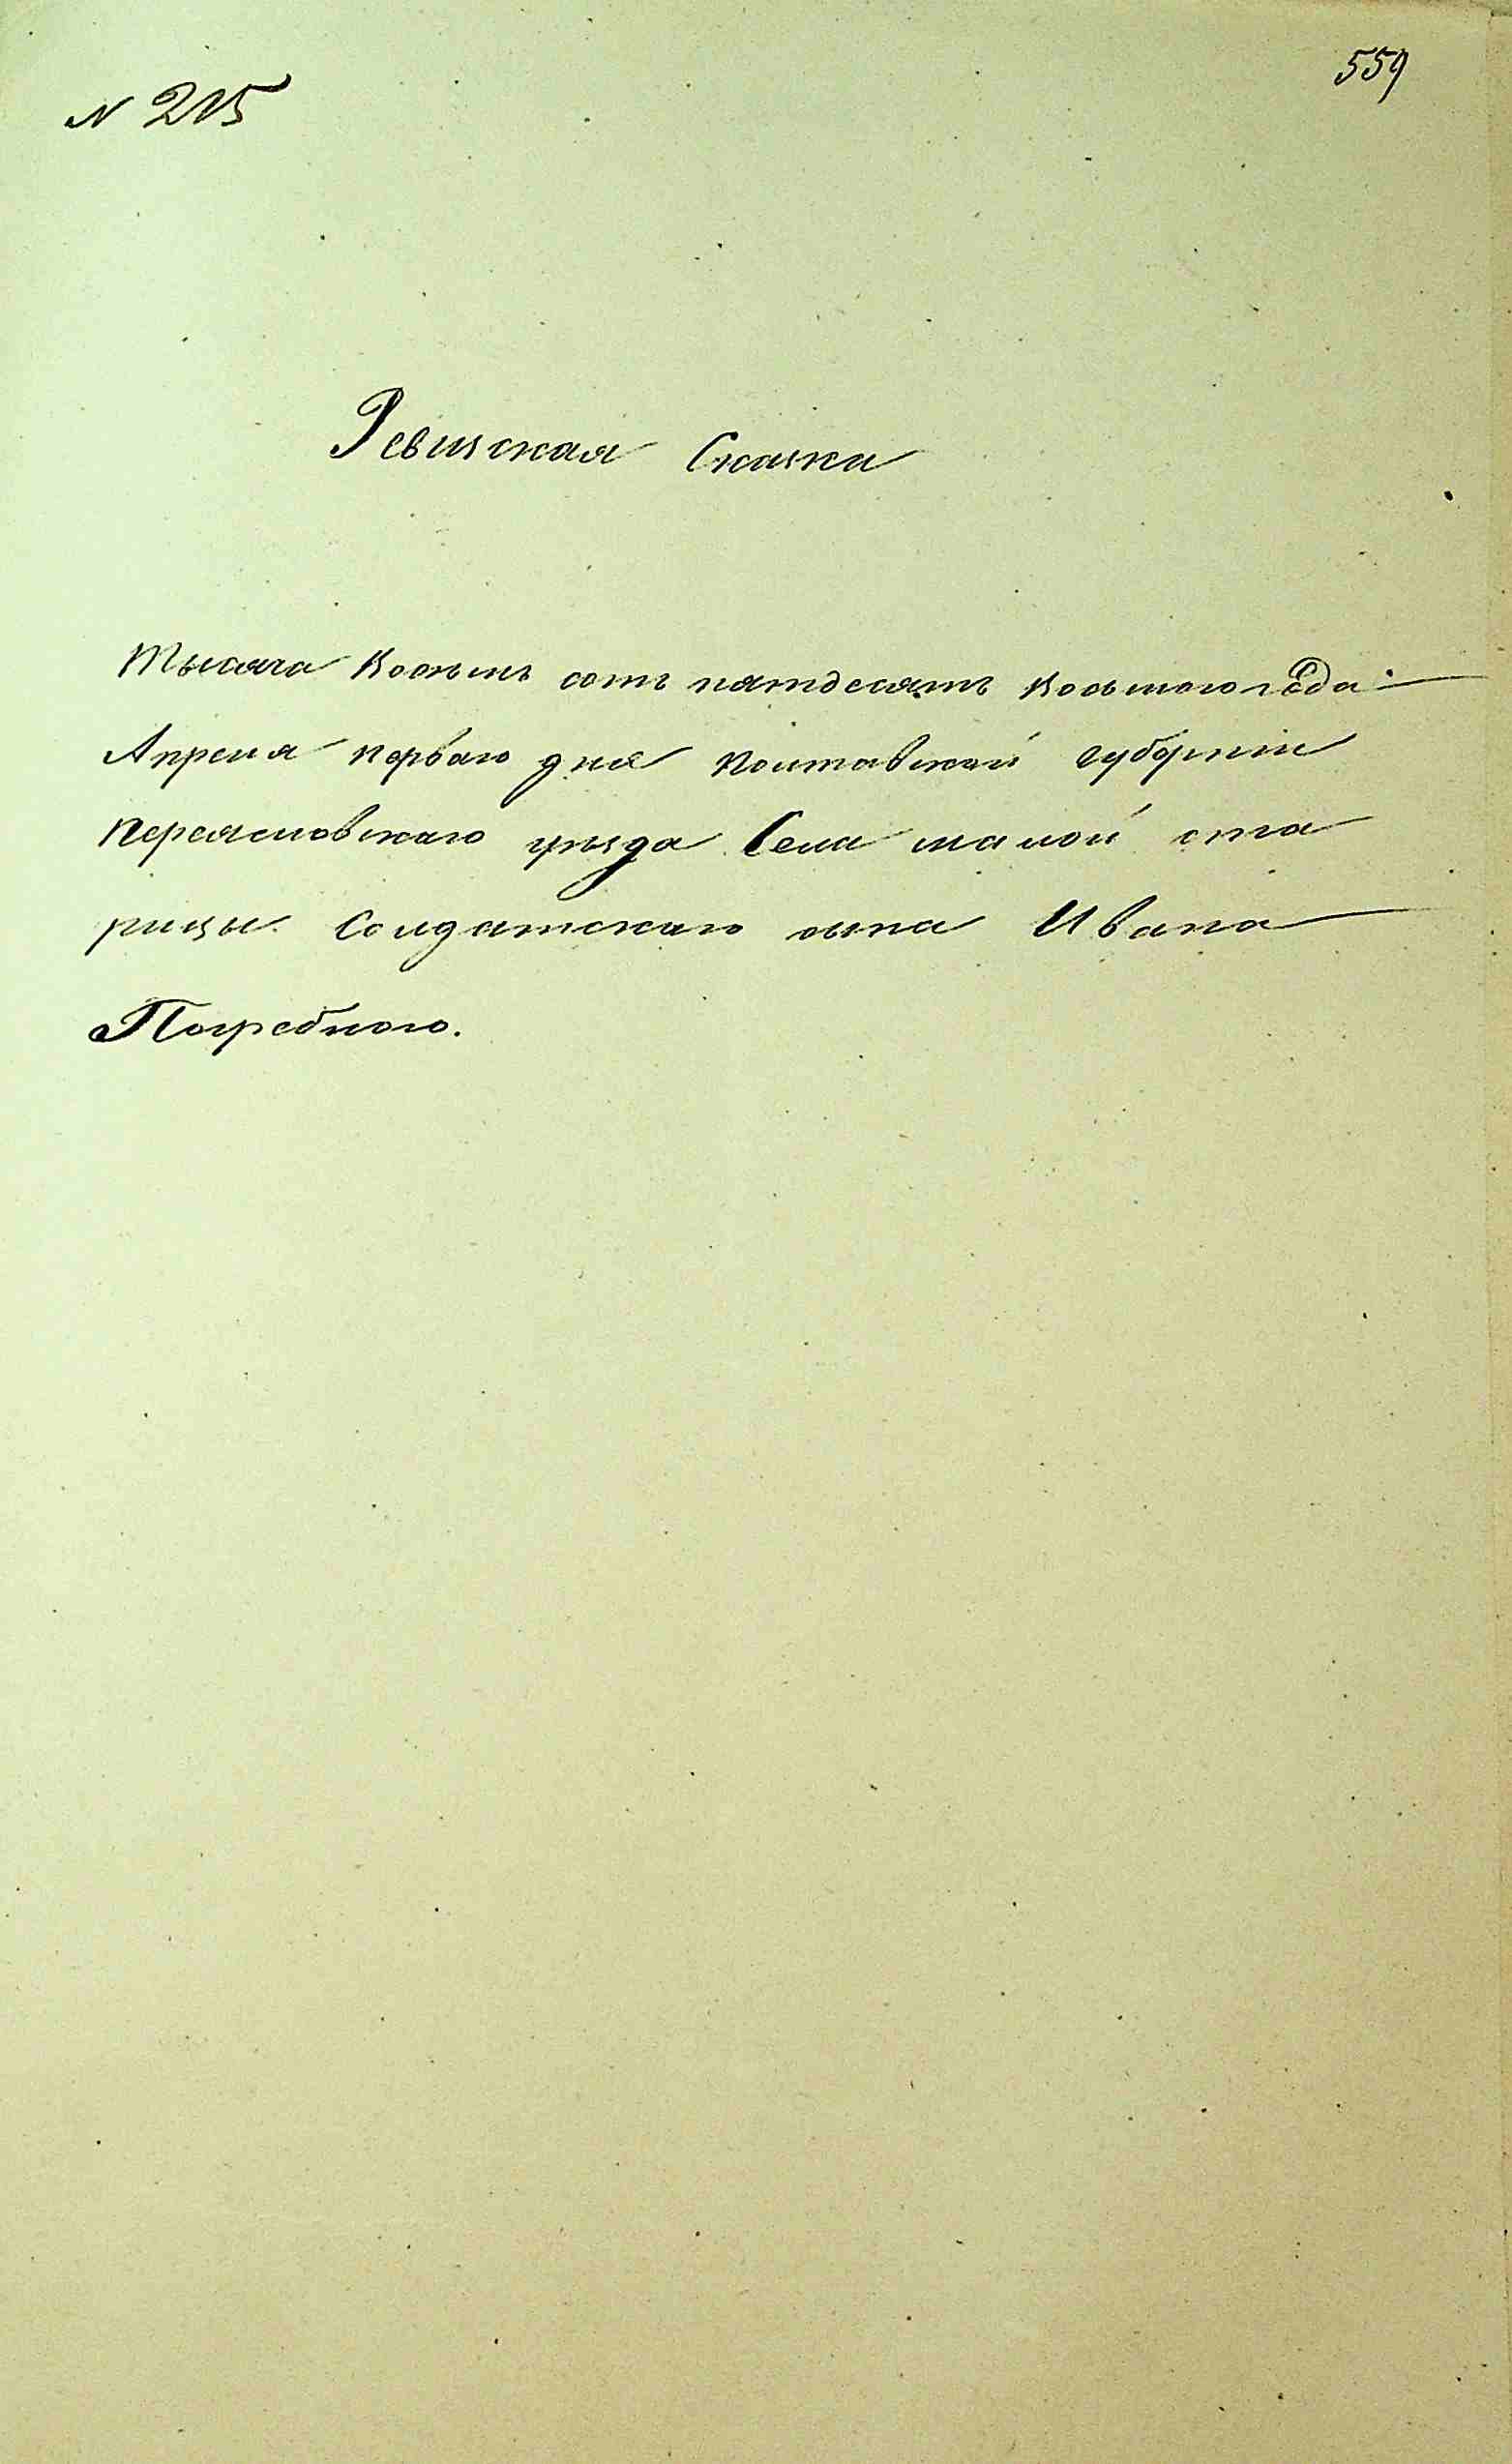 559
N 215
Ревизская Сказка
Тысяча восемь сотъ пятдесятъ восьмого года
Апреля первого дня Полтавской Губерніи
Переяславского уезда Села малой ста
рицы Солдатского сына Ивана
Погребного.